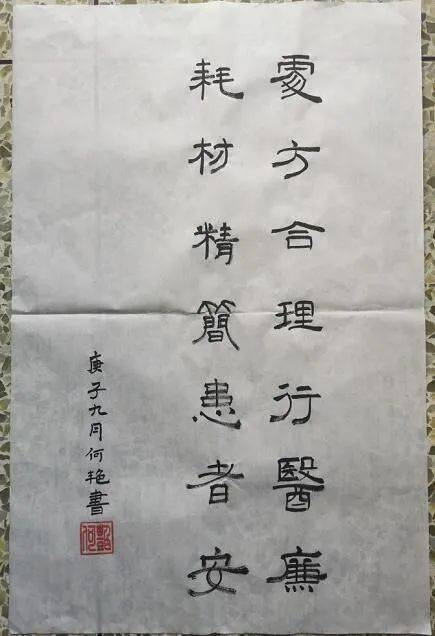 處方合理行醫廉
耗材精簡患者安
庚子九月何艳書